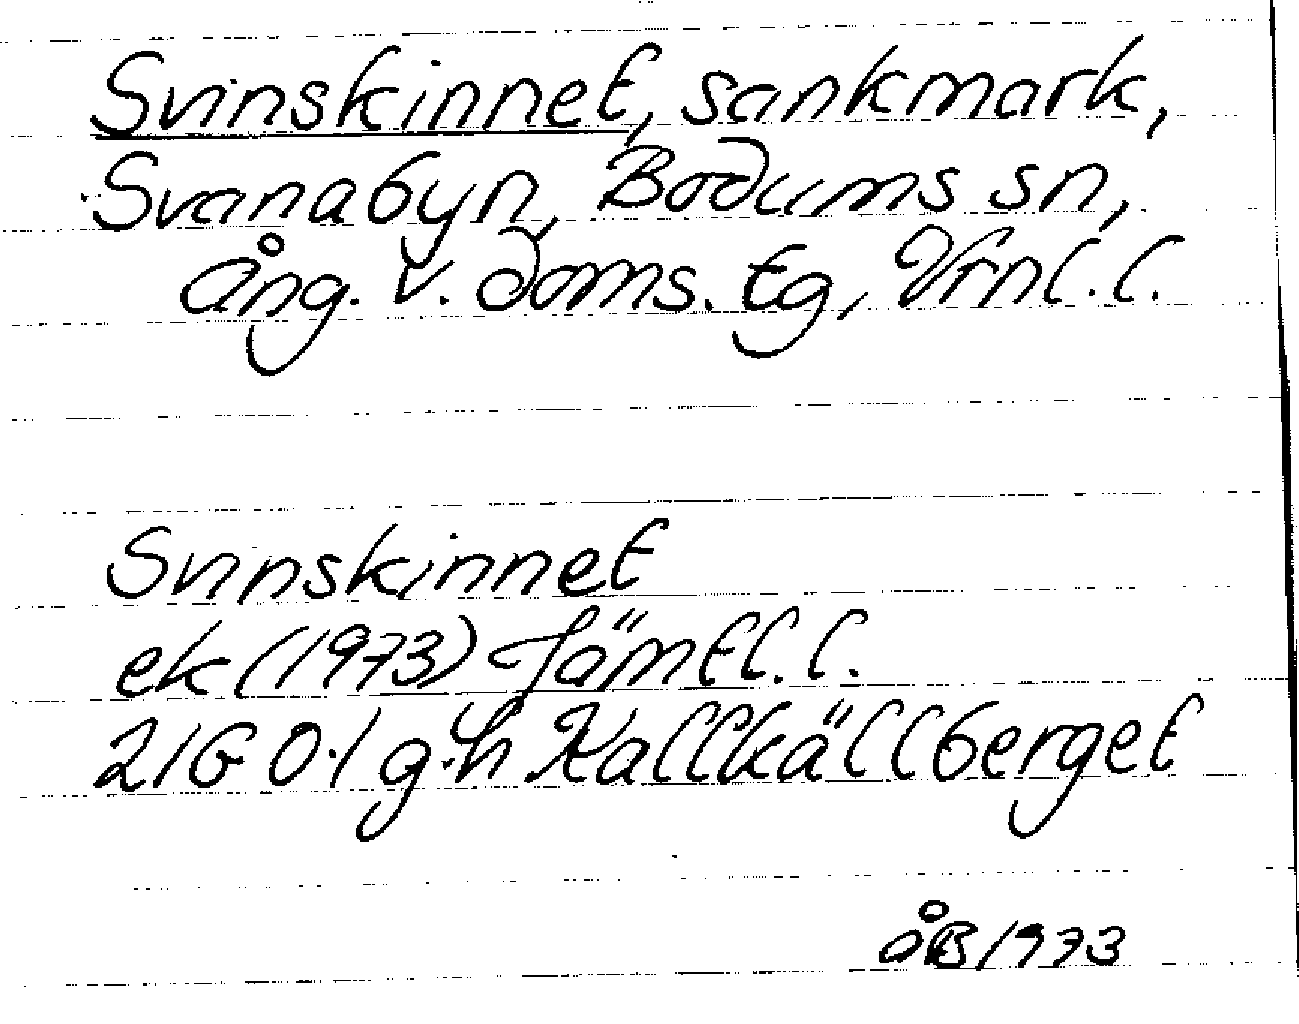 Svinskinnet, sankmark,
Svanabyn, Bodums sn,
Ång. v. doms. tg, Vrnl. l.
Svinskinnet
ek (1973) Jämtl. l.
21G 0·1 g·h Kallkällberget
åB 1973